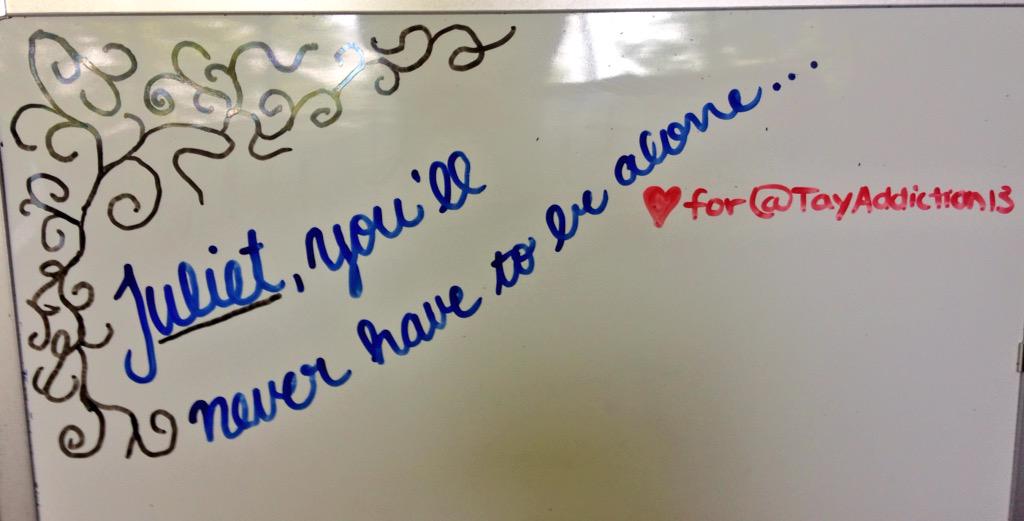 Juliet, you'll
never have to be alone...
♥for @TayAddiction13